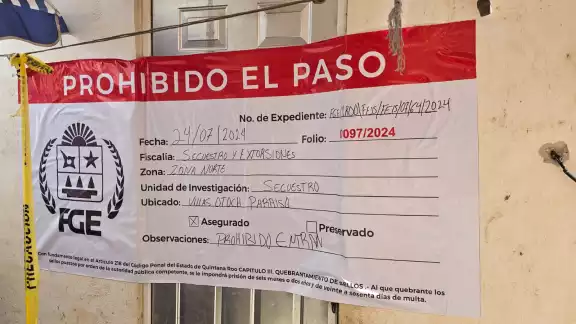 PROHIBIDO EL PASO
No. de Expediente:
Fecha: 24/07/2024 Folio: 1097/2024
Fiscalía: SECUESTRO Y EXTORSIONES
Zona: ZONA NORTE
Unidad de Investigación: SECUESTRO
Ubicado: VILLAS OTOCH PARAISO
☒ Asegurado ☐ Preservado
Observaciones: PROHIBIDO ENTRAR
FGE
Con fundamento legal en el Artículo 216 del Código Penal del Estado de Quintana Roo CAPITULO III. QUEBRANTAMIENTO DE SELLOS.- Al que quebrante los
sellos puestos por orden de la autoridad pública competente, se le impondrá prisión de seis meses a dos años y de veinte a sesenta días de multa.
PRECAUCION